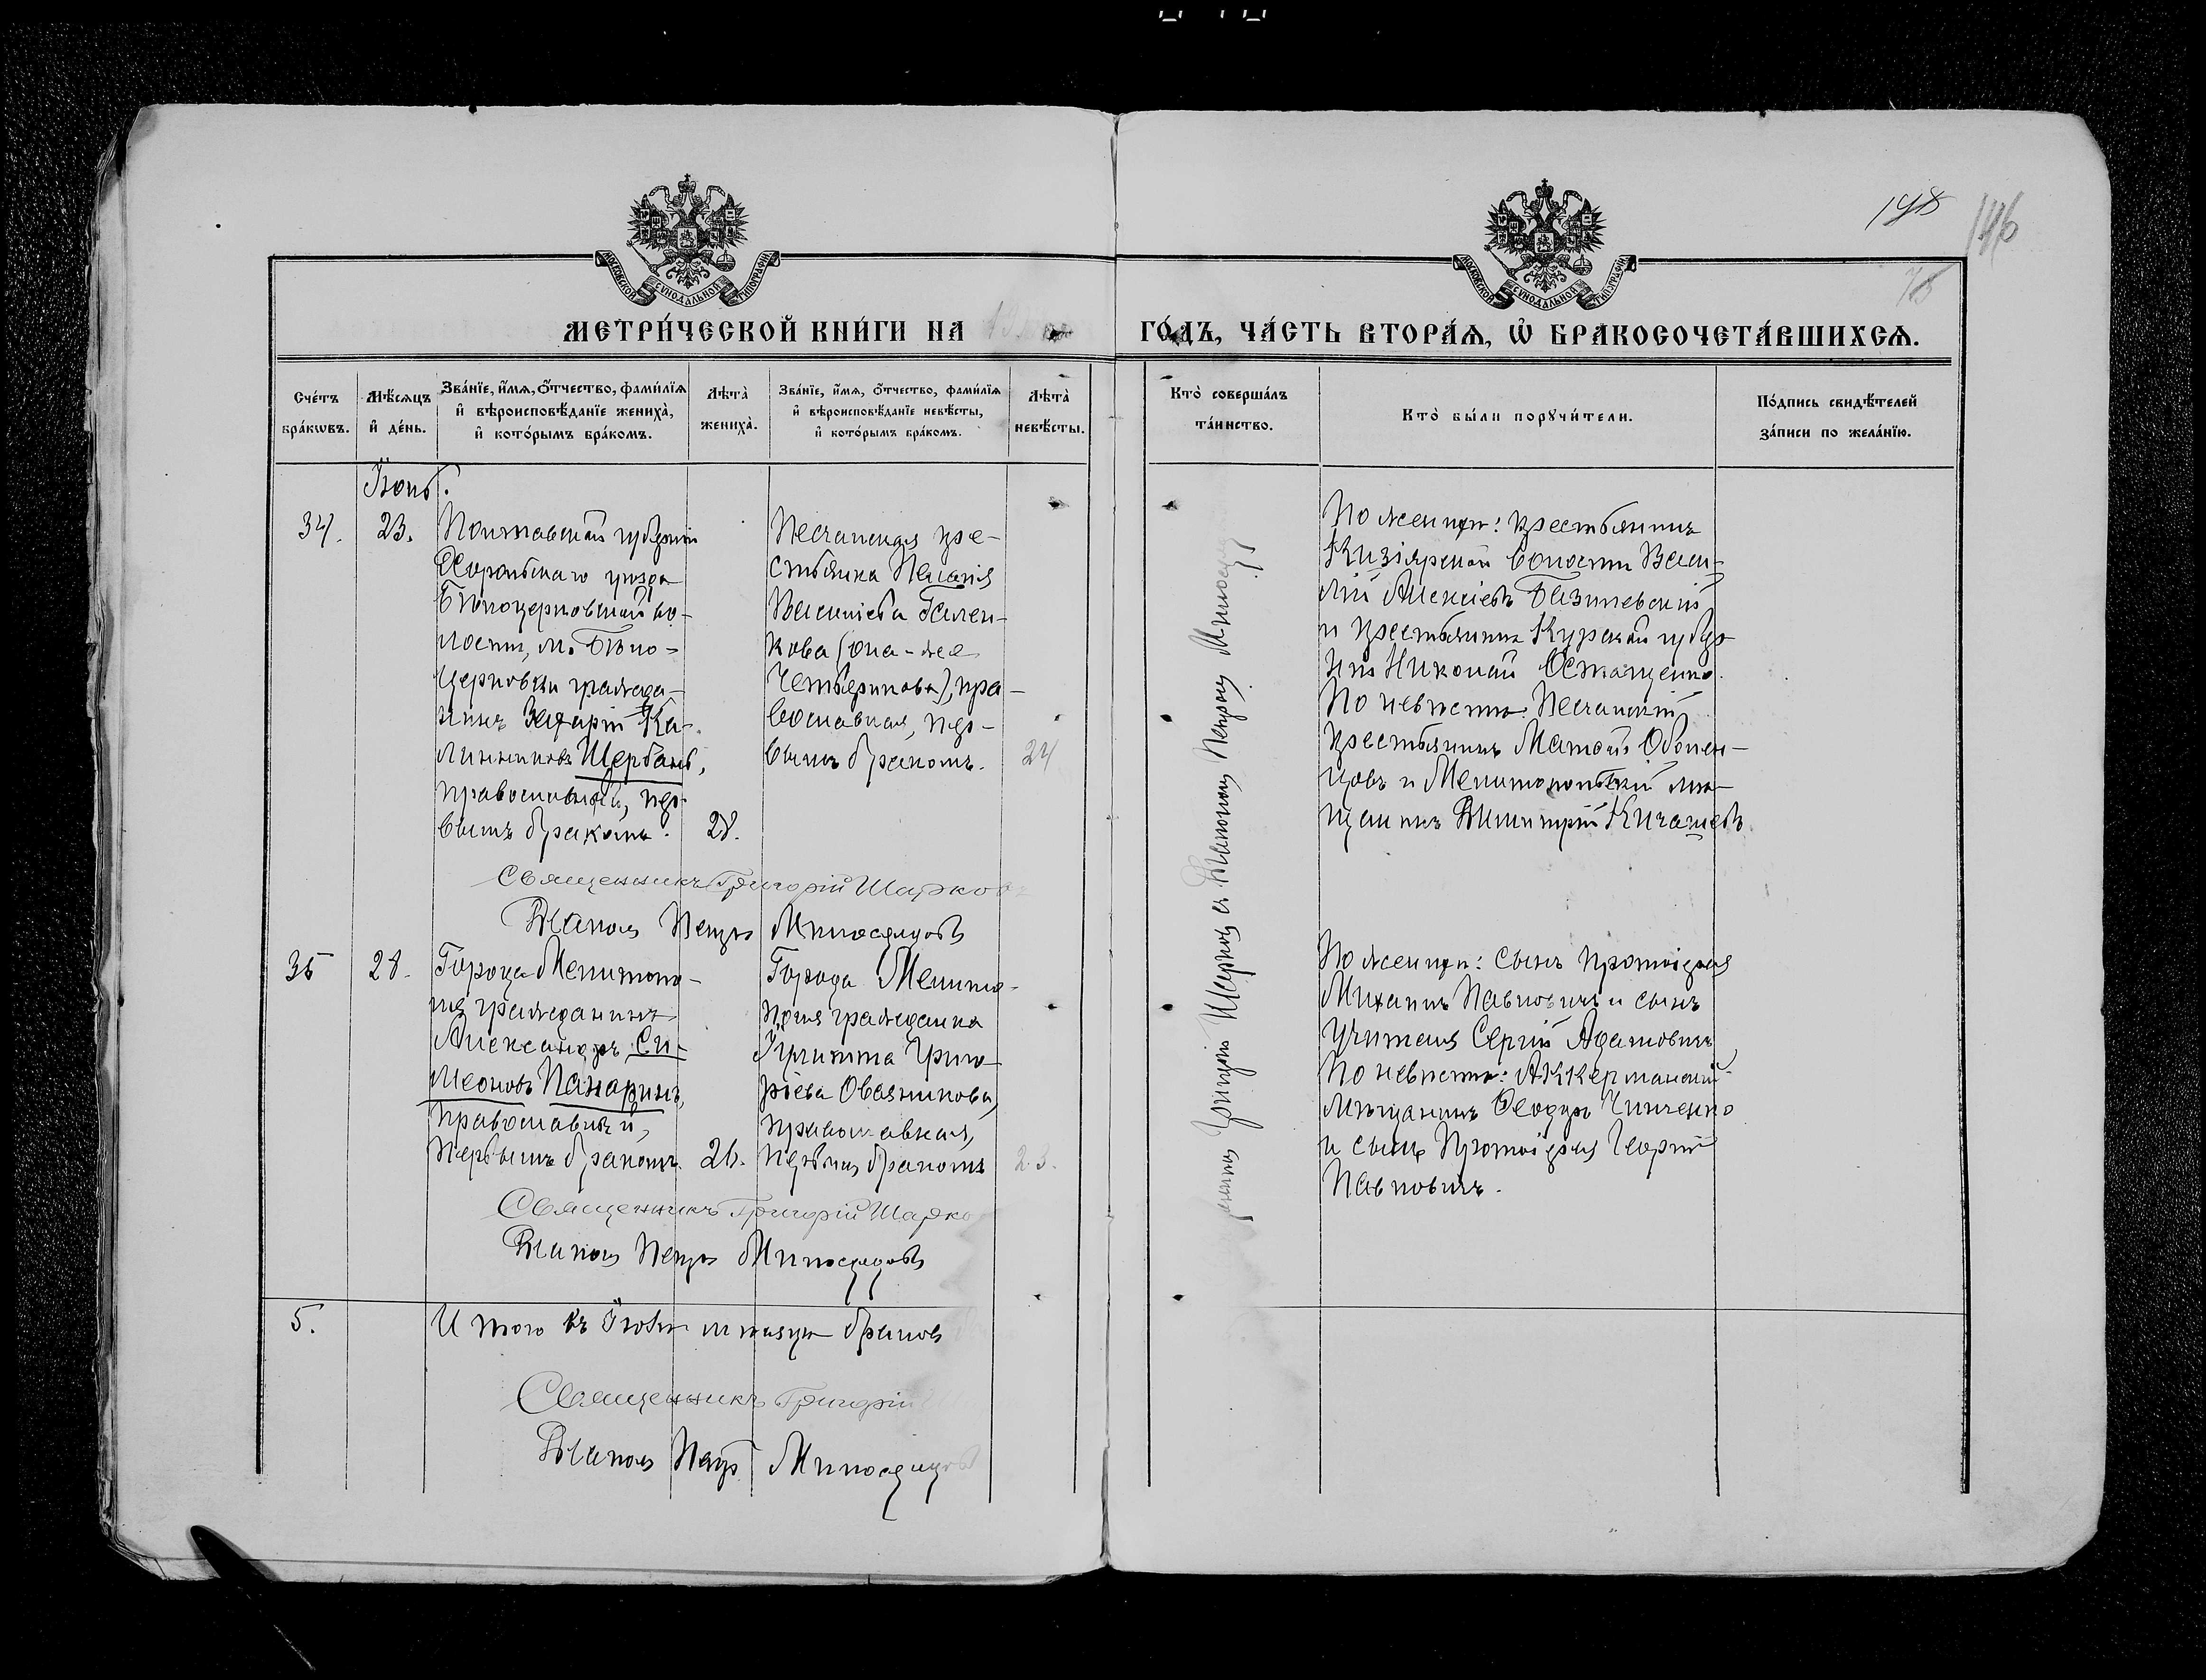 148
146
75
МОСКОВСКОЙ СѴНОДАЛЬНОЙ ТИПОГРАФІИ
МОСКОВСКОЙ СѴНОДАЛЬНОЙ ТИПОГРАФІИ
МЕТРИ́ЧЕСКОЙ КНИ́ГИ НА
ГО́ДЪ, ЧА́СТЬ ВТОРА́Ѧ, Ѽ БРАКОСОЧЕТА́ВШИХСѦ.
Сче́тъ
бра́кѡвъ.
Мѣ́сяцъ
и҆ де́нь.
Зва́нїе, и҆́мѧ, ѻ҆́тчество, фами́лїѧ
и҆ вѣроисповѣ́данїе жениха̀,
и҆ кото́рымъ бра́комъ.
Лѣта̀
жениха̀.
Зва́нїе, и҆́мѧ, ѻ҆́тчество, фами́лїѧ
и҆ вѣроисповѣ́данїе невѣ́сты,
и҆ кото́рымъ бра́комъ.
Лѣта̀
невѣ́сты.
Кто̀ соверша́лъ
та́инство.
Кто̀ бы́ли порꙋчи́тели.
По́дпись свидѣ́телей
за́писи по жела́нїю.
Іюнь.
34.
23.
Полтавской губерніи
Хорольскаго уѣзда
Бѣлоцерковской во-
лости, м. Бѣло-
церковки гражда-
нинъ Захарій Ка-
линниковъ Щербань,
православный, пер-
вымъ бракомъ.
28.
Песчанская кре-
стьянка Пелагія
Васильева Гален-
кова (она-же
Четверикова), пра-
вославная, пер-
вымъ бракомъ.
24
По женихѣ: крестьянинъ
Кизіярской волости Васи-
лій Алексѣевъ Базилевскій
и крестьянинъ Курской губер-
ніи Николай Осташенко.
По невѣстѣ: Песчанскій
крестьянинъ Матѳѣй Оболен-
цовъ и Мелитопольскій мѣ-
щанинъ Димитрій Кичашевъ
Священникъ Григорій Шарковъ
Діаконъ Петръ Милосердовъ
Григорій Шарков съ Діакономъ Петромъ Милосердов
35
28.
Города Мелитопо-
ля гражданинъ
Александръ Си-
меоновъ Панаринъ,
православный,
первымъ бракомъ.
26.
Города Мелито-
поля гражданка
Іулитта Григо-
рьева Овсянникова,
православная,
первымъ бракомъ
23.
По женихѣ: сынъ протоіерея
Михаилъ Павловичъ и сынъ
учителя Сергій Адамовичъ
По невѣстѣ: Аккерманскій
мѣщанинъ Ѳеодоръ Чинченко
и сынъ Протоіерея Георгій
Павловичъ.
Священникъ Григорій Шарко
Діаконъ Петръ Милосердовъ
5.
Итого въ Іюнѣ мѣсяцѣ браковъ
Священникъ Григорій
Діаконъ Петръ Милосердовъ